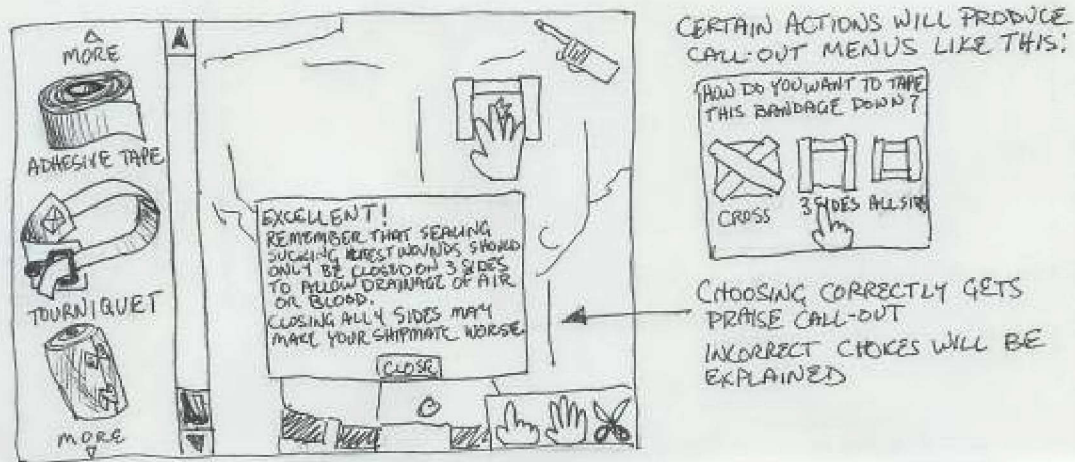 MORE
ADHESIVE TAPE
TOURNIQUET
MORE
EXCELLENT!
REMEMBER THAT SEALING
SUCKING CHEST WOUNDS SHOULD
ONLY BE CLOSED ON 3 SIDES
TO ALLOW DRAINAGE OF AIR
OR BLOOD.
CLOSING ALL 4 SIDES MAY
MAKE YOUR SHIPMATE WORSE
CLOSE
CERTAIN ACTIONS WILL PRODUCE
CALL-OUT MENUS LIKE THIS:
HOW DO YOU WANT TO TAPE
THIS BANDAGE DOWN?
CROSS
3 SIDES
ALL SIDES
CHOOSING CORRECTLY GETS
PRAISE CALL-OUT
INCORRECT CHOICES WILL BE
EXPLAINED